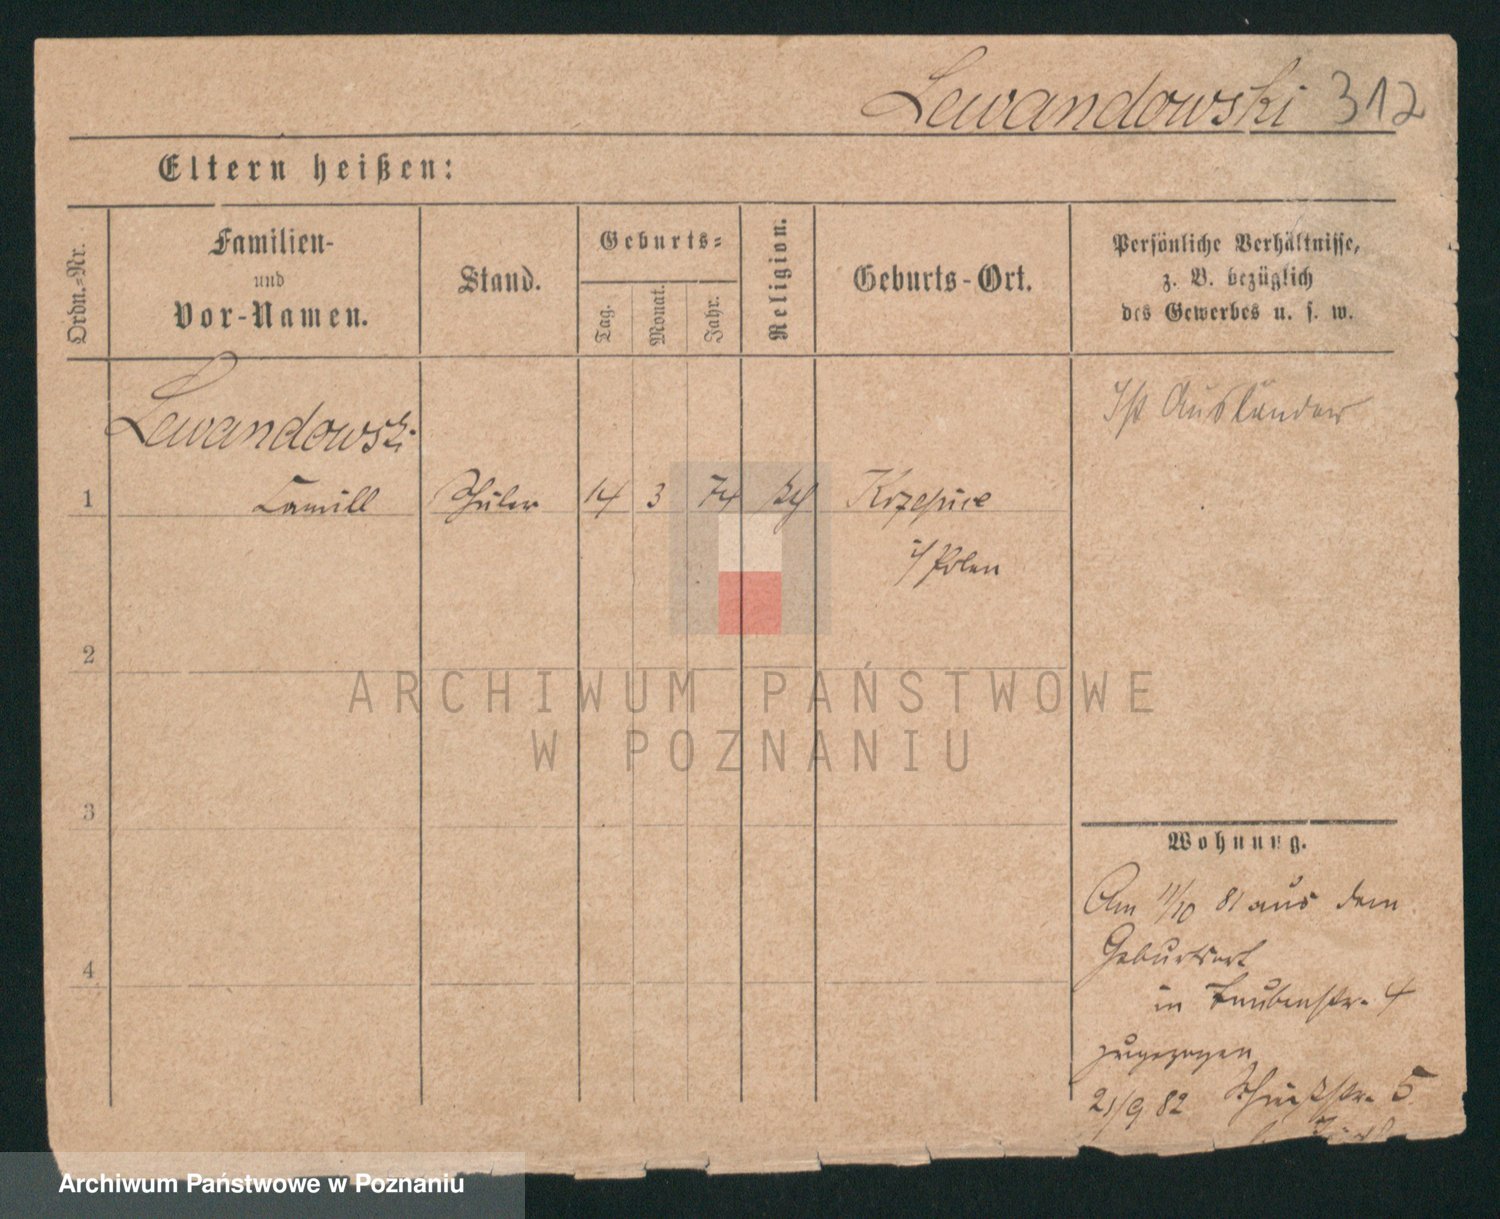 Lewandowski 312
Eltern heißen:
Ordn.-Nr.
Familien-
und
Vor-Namen.
Stand.
Geburts-
Tag.
Monat.
Jahr.
Religion.
Geburts-Ort.
Persönliche Verhältnisse,
z. B. bezüglich
des Gewerbes u. s. w.
Lewandowski
Ist Ausländer
1 Camill Schüler 14 3 74 kth Krzepice
i/Polen
2
3
4
Wohnung.
Am 11/10 81 aus dem
Geburtsort
in Taubenstr. 4
zugezogen
21/9 82 Schützstr. 5.
ARCHIWUM PAŃSTWOWE
W POZNANIU
Archiwum Państwowe w Poznaniu